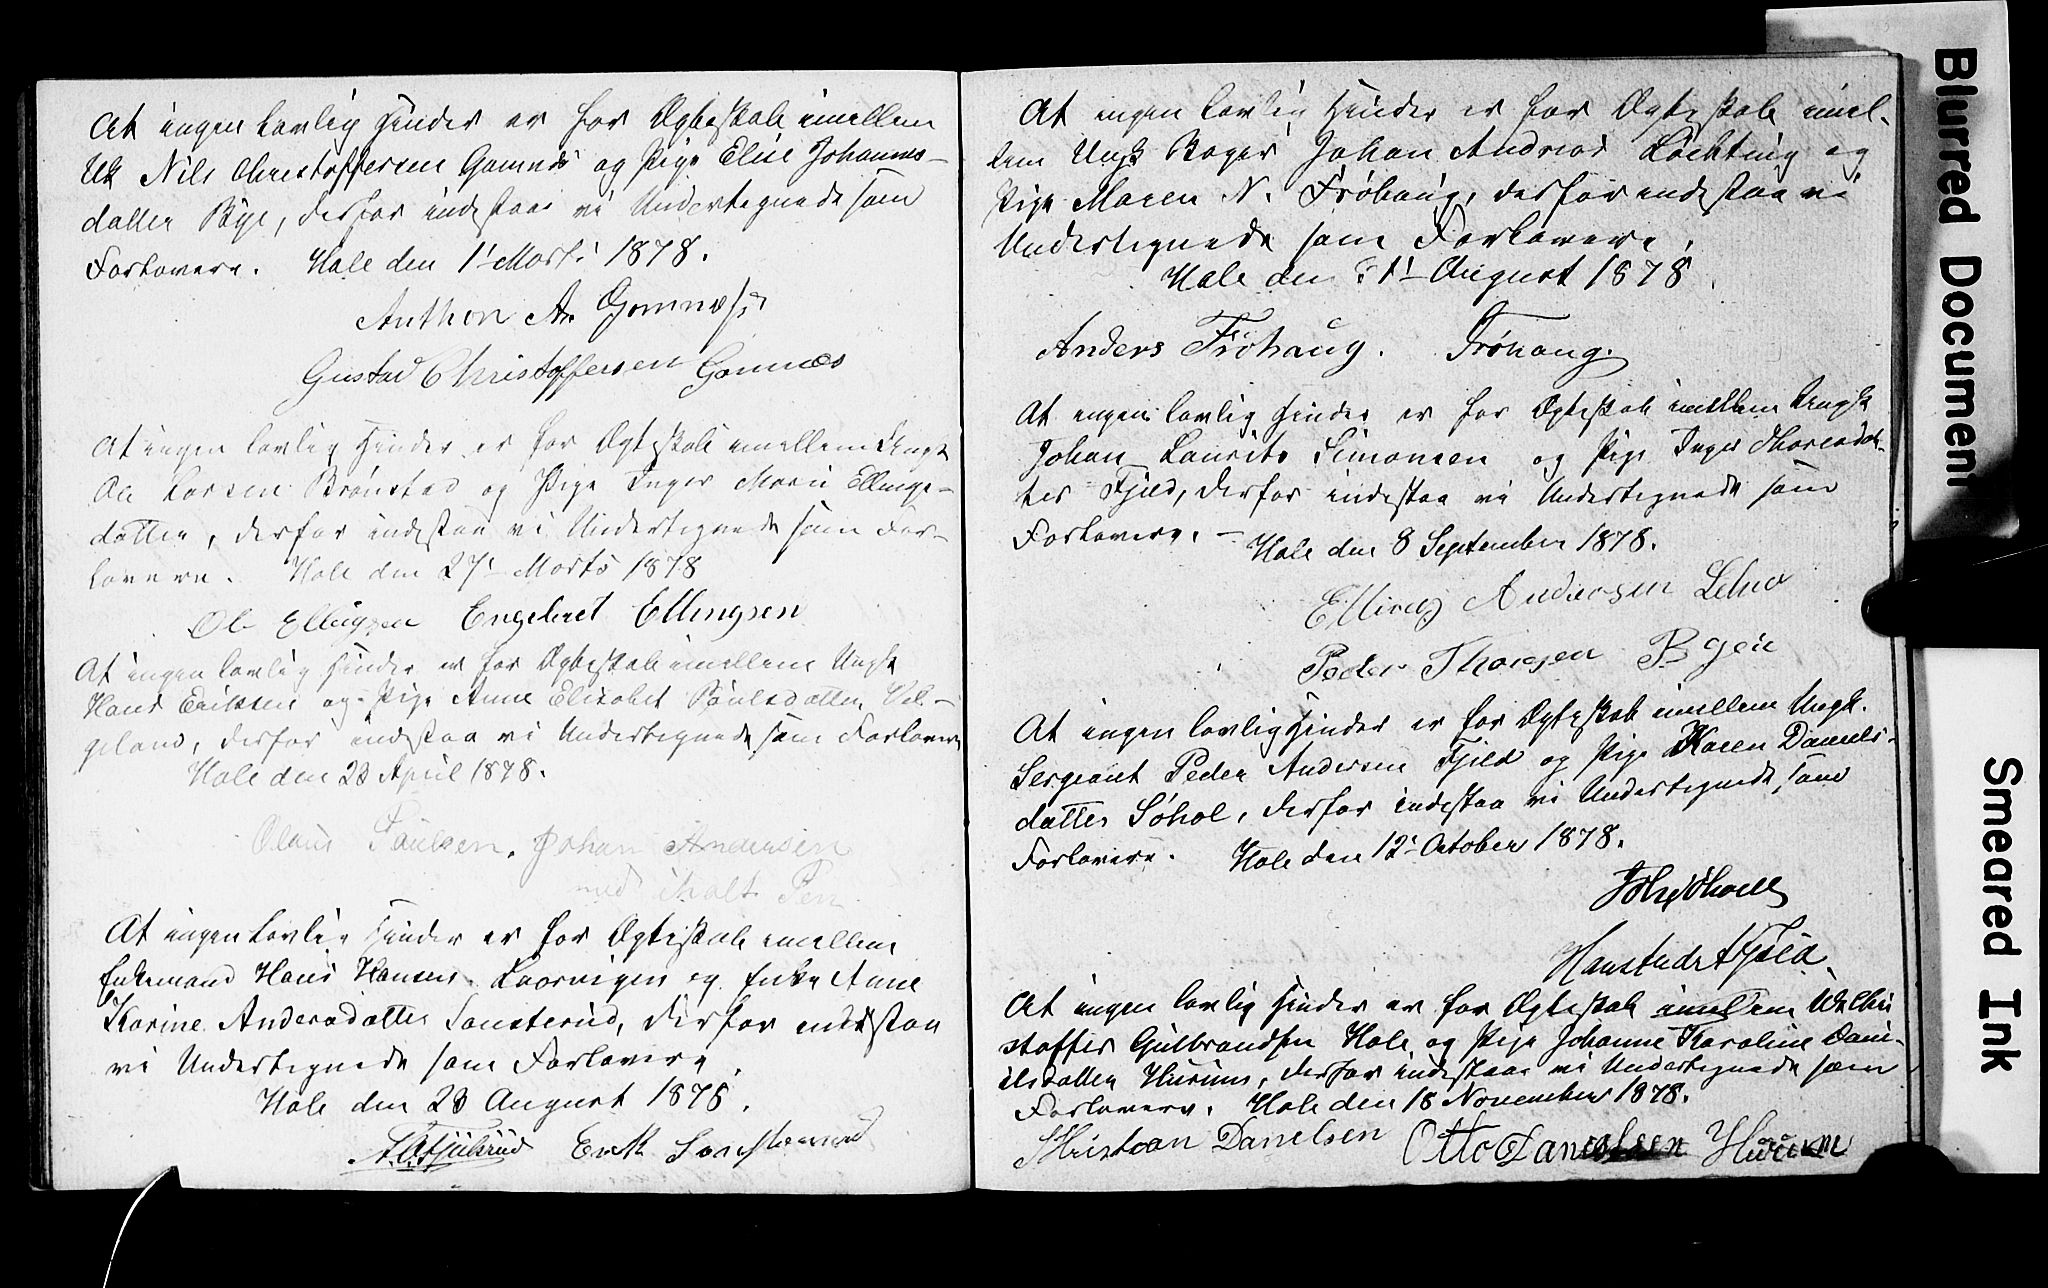 At ingen lovlig Hinder er for Ægteskab imellem
Uk Nils Christoffersen Gomnæs og Pige Elise Johannes-
datter Bye, derfor indestaa vi Undertegnede som
Forlovere. Hole den 1' Marts 1878.
Anthon A. Gomnæs
Gustav Christoffersen Gomnæs
At ingen lovlig Hinder er for Ægteskab imellem Ungk
Ole Larsen Brønstad og Pige Inger Marie Ellings-
datter, derfor indestaa vi Undertegnede som For-
lovere. Hole den 27' Marts 1878
Ole Ellingsen Engebret Ellingsen
At ingen lovlig Hinder er for Ægteskab imellem Ungk
Hans Eriksen og Pige Anne Elisabet Paulsdatter Vel-
geland, derfor indestaa vi Undertegnede som Forlovere
Hole den 23 April 1878.
Olaus Paulsen. Johan Andersen
med iholt Pen
At ingen Lovlig Hinder er for Ægteskab imellem
Enkemand Hans Hansen og Enke Anne
Karine Andersdatter Sonsterud, derfor indestaa
vi Undertegnede som Forlovere.
Hole den 23 August 1878.
Erik Sonsterud
At ingen lovlig Hinder er for Ægteskab imel-
lem Ungk Bager Johan Andreas Løchting og
Pige Maren N. Frøhaug, derfor indestaa vi
Undertegnede som Forlovere.
Hole den 31' August 1878.
Anders Frøhaug. Frøhaug.
At ingen lovlig Hinder er for Ægteskab imellem Ungk
Johan Laurits Simonsen og Pige Inger Thoresdat-
ter Fjeld, derfor indestaa vi Undertegnede som
Forlovere. - Hole den 8 September 1878.
Elling Andersen
Peder Thoresen
At ingen lovlig Hinder er for Ægteskab imellem Ungk.
Sergeant Peder Andersen Fjeld og Pige Karen Daniels-
datter Søhol, derfor indestaa vi Undertegnede som
Forlovere. Hole den 12' October 1878.
Fjeld
At ingen lovlig Hinder er for Ægteskab imellem Uk Chri
stoffer Gulbrandsen Hole og Pige Johanne Karoline Dani-
elsdatter Hurum, derfor indestaa vi Undertegnede som
Forlovere. Hole den 18 November 1878.
Khristian Danelsen Otto Danielsen Hurum
Blurred Document
Smeared Ink